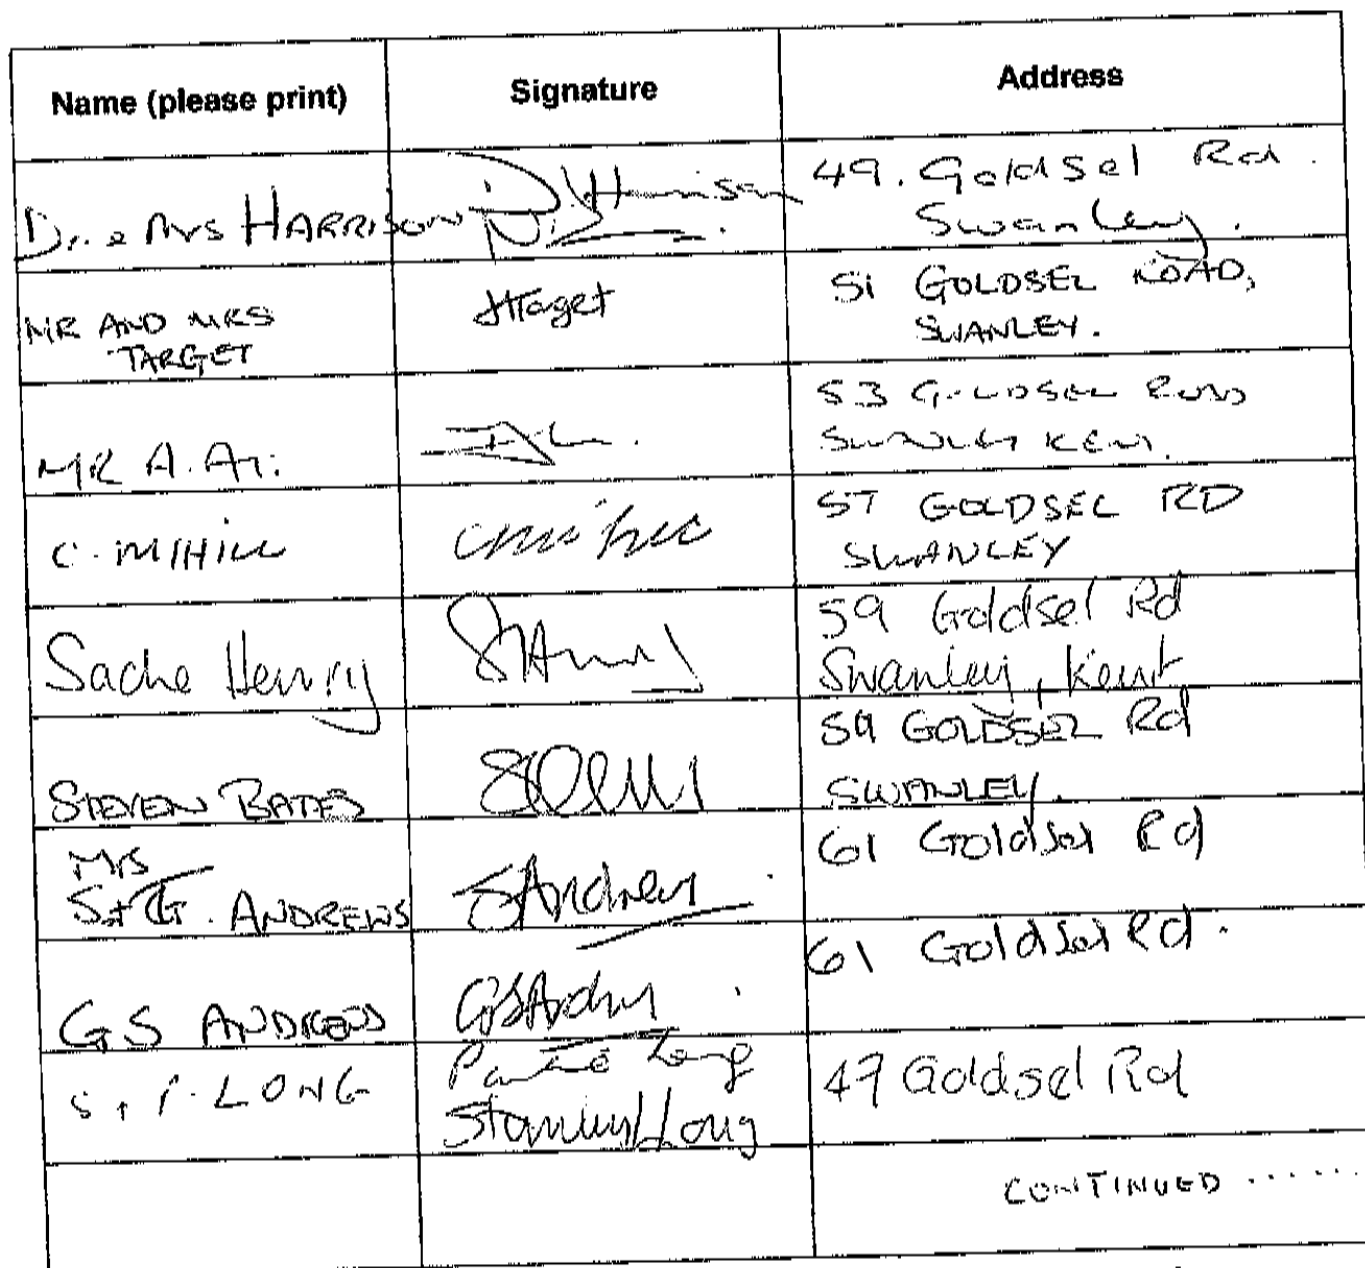 Name (please print) Signature Address
Dr. & Mrs HARRISON D. Harrison 49. Goldsel Rd.
Swanley.
MR AND MRS TARGET JTarget 51 GOLDSEL ROAD,
SWANLEY.
MR A. 53 GOLDSEL ROAD
SWANLEY KENT.
C. MIHILL 57 GOLDSEL RD
SWANLEY
Sache Henry 59 Goldsel Rd
Swanley, Kent
STEVEN BATES 59 GOLDSEL Rd
SWANLEY.
Mrs
S + G. ANDREWS SAndrews 61 Goldsel Rd
GS ANDREWS GSAndrews 61 Goldsel Rd.
S + P. LONG Long 47 Goldsel Rd
Stanley Long
CONTINUED ......